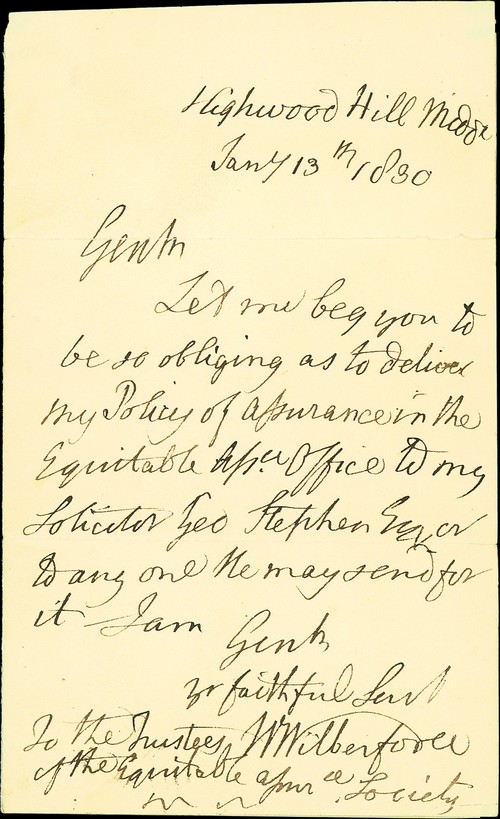 Highwood Hill Middx
Jany 13th 1830
Gentn
Let me beg you to
be so obliging as to deliver
my Policy of Assurance in the
Equitable Assce Office to my
Solicitor Geo Stephen Esqr or
to any one He may send for
it I am
Gentn
yr faithful Servt
W Wilberforce
To the Trustees
of the Equitable Assurce Society